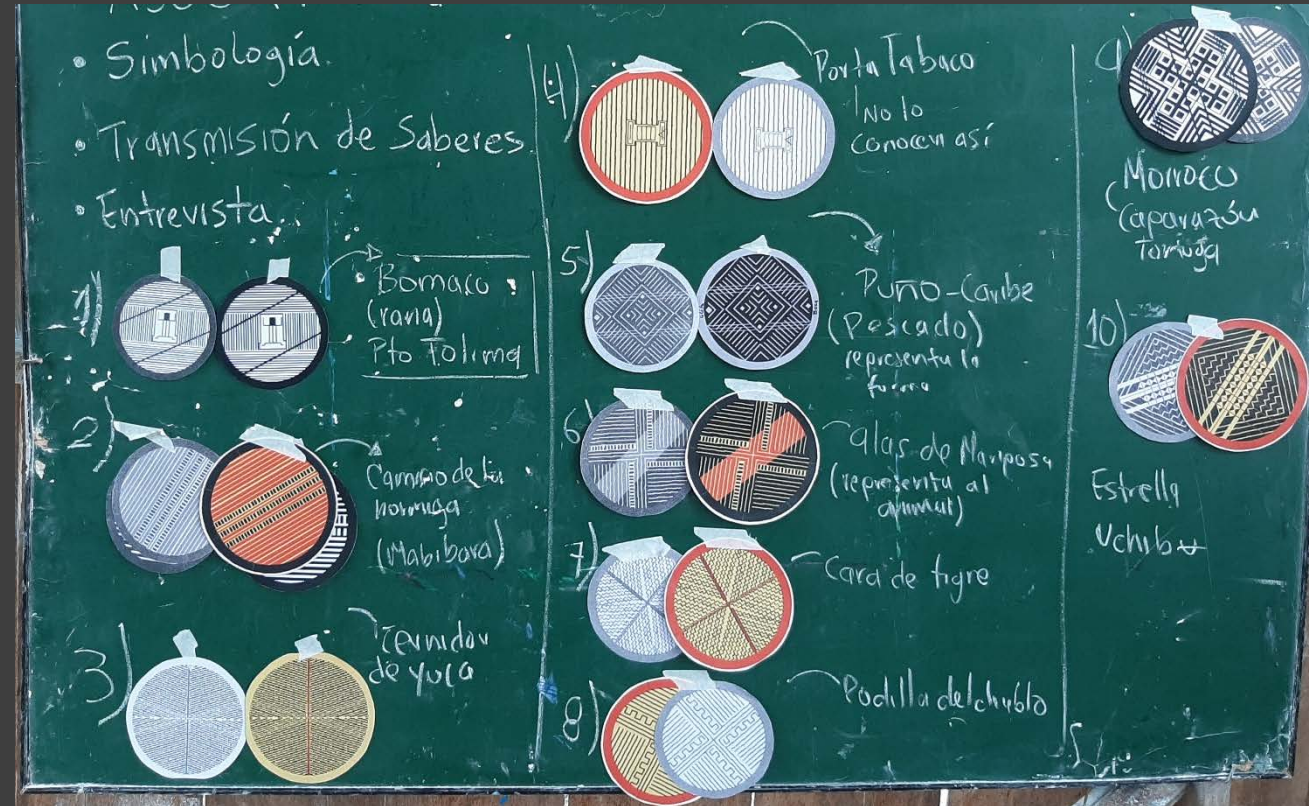 • Simbología.
• Transmisión de Saberes
• Entrevista..
1)
Bomaco
(rana)
Pto Tolima
2)
Camino de la
hormiga
(Mabibara)
3)
Cernidor
de yuca
4)
Porta Tabaco
No lo
conocen así
5)
Puño-Caribe
(Pescado)
representa la
forma
6)
alas de Mariposa
(representa al
animal)
7)
Cara de tigre
8)
Rodilla del chublo
9)
Morroco
Caparazón
Tortuga
10)
Estrella